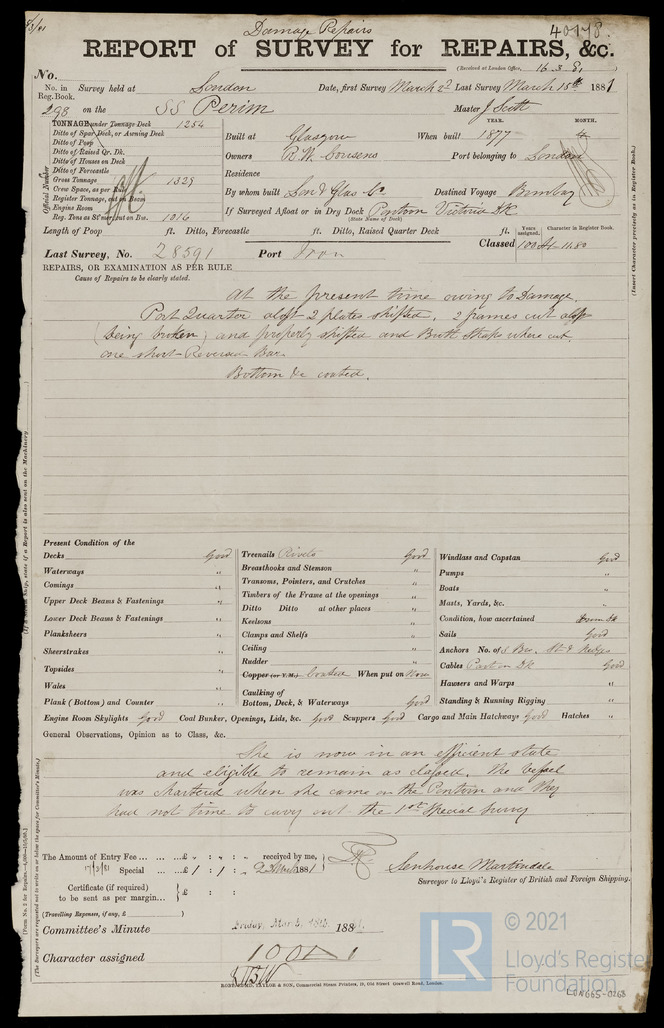 Damage Repairs
40178.
REPORT of SURVEY for REPAIRS, &c.
(Received at London Office, 16.3.81)
No.
No. in Reg. Book. Survey held at London Date, first Survey March 2d Last Survey March 15th 1881
298 on the SS Perim Master J Scott
TONNAGE under Tonnage Deck 1254
Ditto of Spar Deck, or Awning Deck
Ditto of Poop
Ditto of Raised Qr. Dk.
Ditto of Houses on Deck
Ditto of Forecastle
Gross Tonnage 1329
Crew Space, as per Rule
Register Tonnage, cut on Beam
Engine Room
Reg. Tons as Steamer, cut on Bm. 1016
Official Number
YEAR. MONTH.
Built at Glasgow When built 1877 4
Owners R. W. Cousens Port belonging to London
Residence
By whom built Lon & Glas Co. Destined Voyage Bombay
If Surveyed Afloat or in Dry Dock Pontoon Victoria Dk
(State Name of Dock)
Length of Poop ft. Ditto, Forecastle ft. Ditto, Raised Quarter Deck ft.
Years assigned. Character in Register Book.
Last Survey, No. 28591 Port Iron Classed 100 A1 11.80
(Insert Character precisely as in Register Book.)
REPAIRS, OR EXAMINATION AS PER RULE
Cause of Repairs to be clearly stated.
At the present time owing to Damage.
Port Quarter aloft 2 plates shifted, 2 frames cut
(being broken) and properly shifted and Butt Straps where cut,
one short Reverse bar.
Bottom &c coated.
Present Condition of the
Decks Good
Waterways "
Comings "
Upper Deck Beams & Fastenings "
Lower Deck Beams & Fastenings "
Planksheers "
Sheerstrakes "
Topsides "
Wales "
Plank (Bottom) and Counter "
Treenails Rivets Good
Breasthooks and Stemson "
Transoms, Pointers, and Crutches "
Timbers of the Frame at the openings "
Ditto Ditto at other places "
Keelsons "
Clamps and Shelfs "
Ceiling "
Rudder "
Copper (or Y.M.) Coated When put on Now
Caulking of
Bottom, Deck, & Waterways Good
Windlass and Capstan Good
Pumps "
Boats "
Masts, Yards, &c. "
Condition, how ascertained
Sails Good
Anchors No. of 3 Br. St & Kedges
Cables Good
Hawsers and Warps "
Standing & Running Rigging "
Engine Room Skylights Good Coal Bunker, Openings, Lids, &c. Good Scuppers Good Cargo and Main Hatchways Good Hatches "
General Observations, Opinion as to Class, &c.
She is now in an efficient state
and eligible to remain as classed. The Vessel
was chartered when she came on the Pontoon and they
had not time to carry out the 1st Special Survey
The Amount of Entry Fee ... £ : : received by me,
17/3/81 Special ... £ 1 : 1 : 1881
Certificate (if required)
to be sent as per margin... £ :
(Travelling Expenses, if any, £ )
Senhouse Martindale
Surveyor to Lloyd's Register of British and Foreign Shipping.
Committee's Minute 188
Character assigned 100A1
ROBERT TAYLOR & SON, Commercial Steam Printers, 19, Old Street Goswell Road, London.
LR
© 2021
Lloyd's Register
Foundation
LON665-0268